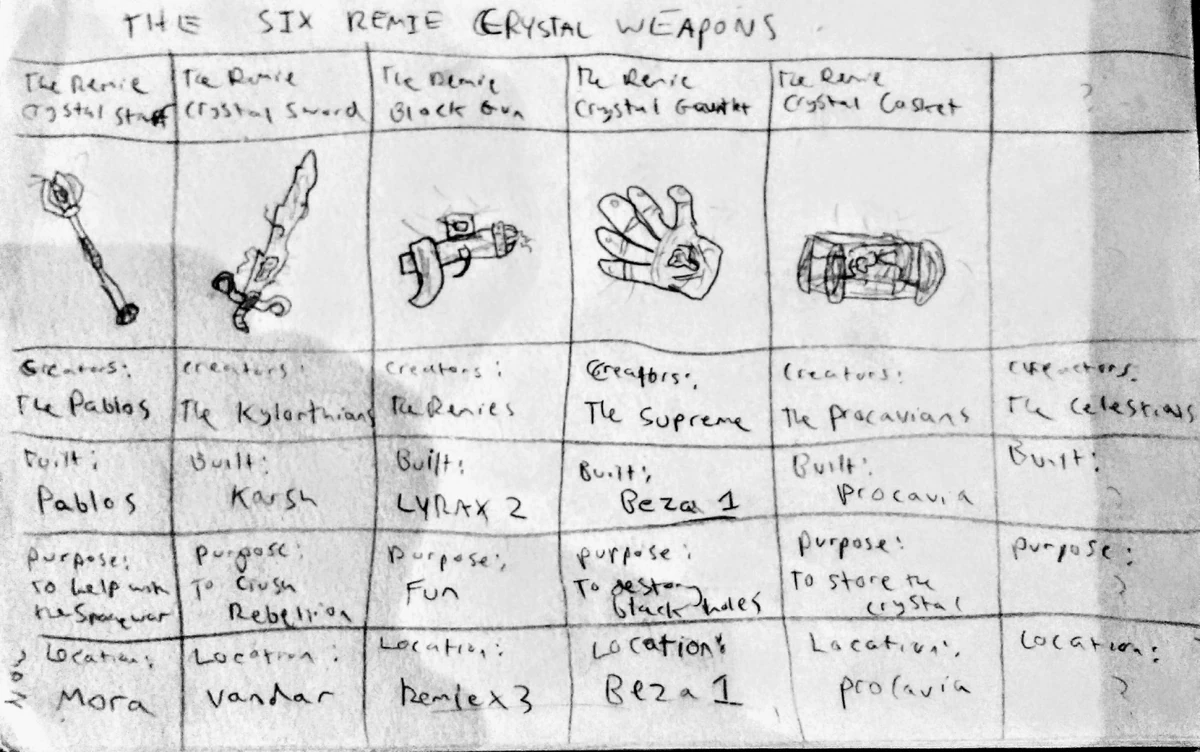 THE SIX REMIE CRYSTAL WEAPONS
The Remie
Crystal Staff
The Remie
Crystal Sword
The Remie
Block Gun
The Remie
Crystal Gauntlet
The Remie
Crystal Casket
?
Creators:
The Pablos
Creators:
The Kylorthians
Creators:
The Remies
Creators:
The Supreme
Creators:
The Procavians
Creators:
The Celestials
Built:
Pablos
Built:
Karsh
Built:
LYRAX 2
Built:
Beza 1
Built:
Procavia
Built:
?
Purpose:
To help with
the Space war
Purpose:
To Crush
Rebellion
Purpose:
Fun
Purpose:
To destory
black holes
Purpose:
To store the
crystal
Purpose:
?
Location:
Mora
Location:
Vandar
Location:
Remiex3
Location:
Beza 1
Location:
Procavia
Location:
?